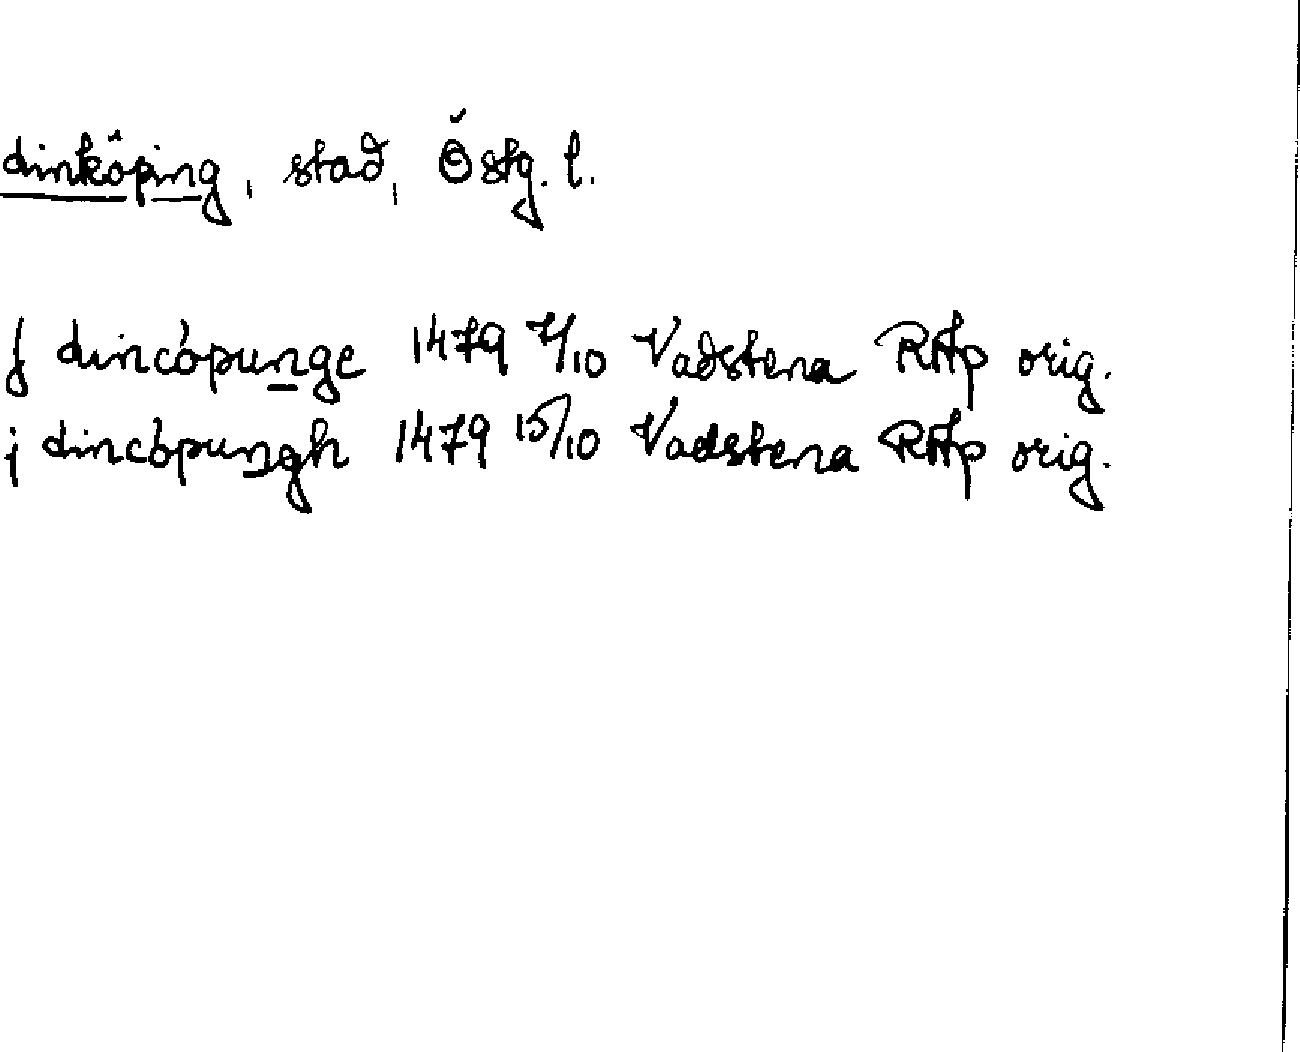 Linköping, stad, Östg. l.
J lincöpunge 1479 7/10 Vadstena RAp orig.
j lincöpungh 1479 15/10 Vadstena RAp orig.